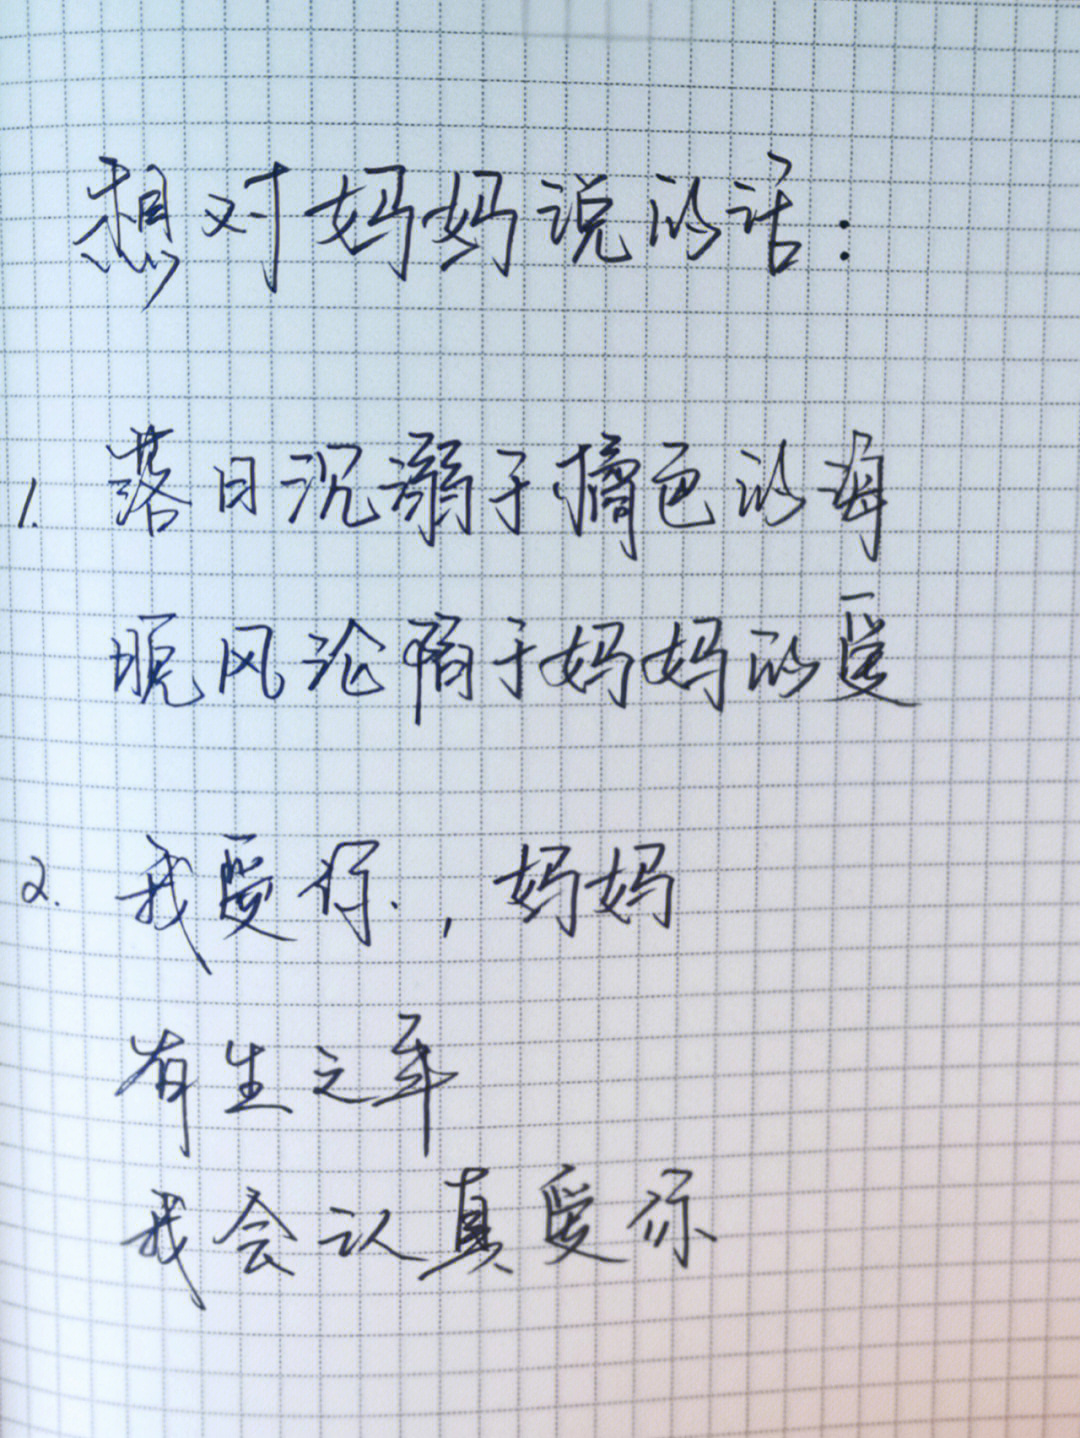 想对妈妈说的话：
1. 落日沉溺于橘色的海
晚风沦陷于妈妈的爱
2. 我爱你，妈妈
有生之年
我会认真爱你